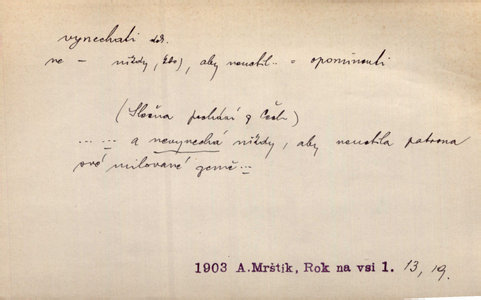 vynechati dok.
ne – nikdy, (kdo), aby neuctil.. = opominouti
(Slečna pochází z Čech)
... ... a nevynechá nikdy, aby neuctila patrona
své milované země ...
1903 A. Mrštík, Rok na vsi 1. 13, 19.